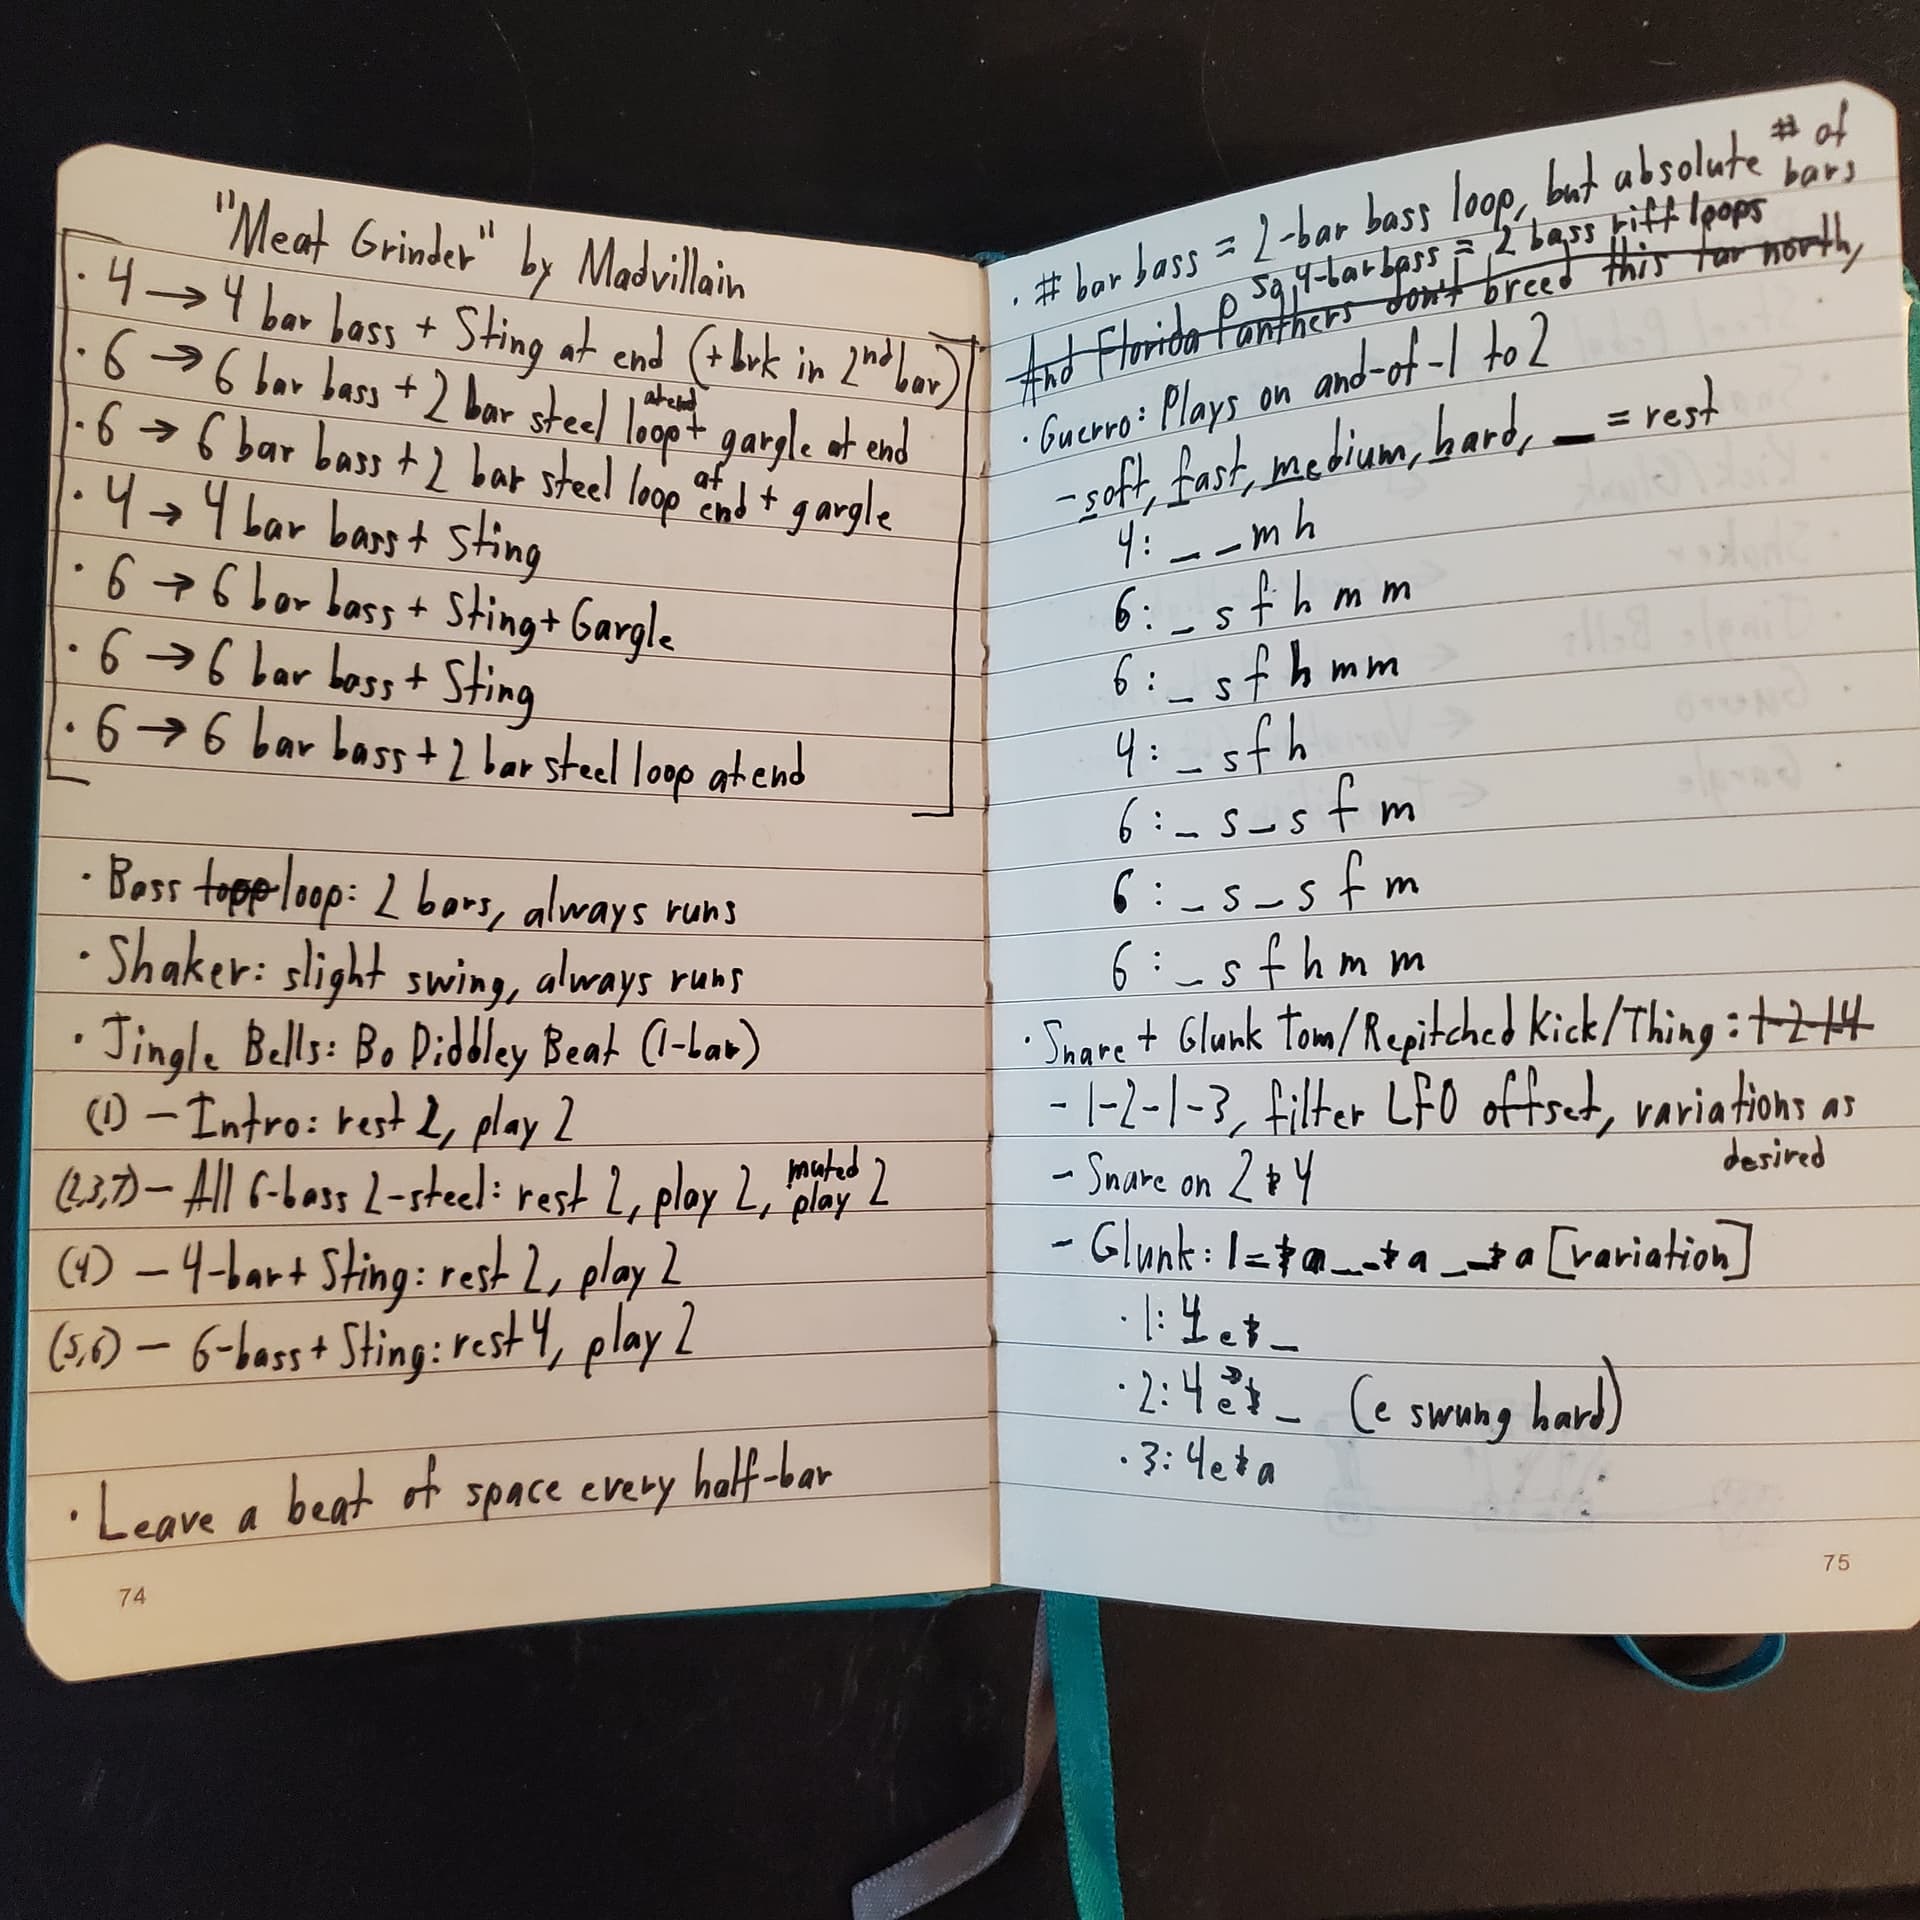 "Meat Grinder" by Madvillain
· 4 → 4 bar bass + Sting at end (+brk in 2nd bar)
· 6 → 6 bar bass + 2 bar steel loop at end + gargle at end
· 6 → 6 bar bass + 2 bar steel loop at end + gargle
· 4 → 4 bar bass + Sting
· 6 → 6 bar bass + Sting + Gargle
· 6 → 6 bar bass + Sting
· 6 → 6 bar bass + 2 bar steel loop at end
· Bass loop: 2 bars, always runs
· Shaker: slight swing, always runs
· Jingle Bells: Bo Diddley Beat (1-bar)
(1) - Intro: rest 2, play 2
(2,3,7) - All 6-bass 2-steel: rest 2, play 2, muted play 2
(4) - 4-bar + Sting: rest 2, play 2
(5,6) - 6-bass + Sting: rest 4, play 2
· Leave a beat of space every half-bar
74
· # bar bass = 2-bar bass loop, but absolute # of bars
so 4-bar bass = 2 bass riff loops
And Florida Panthers don't breed this far north,
· Guerro: Plays on and-of-1 to 2
- soft, fast, medium, hard, _ = rest
4: _ _ m h
6: _ s f h m m
6: _ s f h m m
4: _ s f h
6: _ s _ s f m
6: _ s _ s f m
6: _ s f h m m
· Snare + Glunk Tom/Repitched Kick/Thing: 1-2-14
- 1-2-1-3, filter LFO offset, variations as desired
- Snare on 2 & 4
- Glunk: 1=& a _ _ & a _ _ & a [variation]
· 1: 4 e & _
· 2: 4 e & _ (e swung hard)
· 3: 4 e & a
75